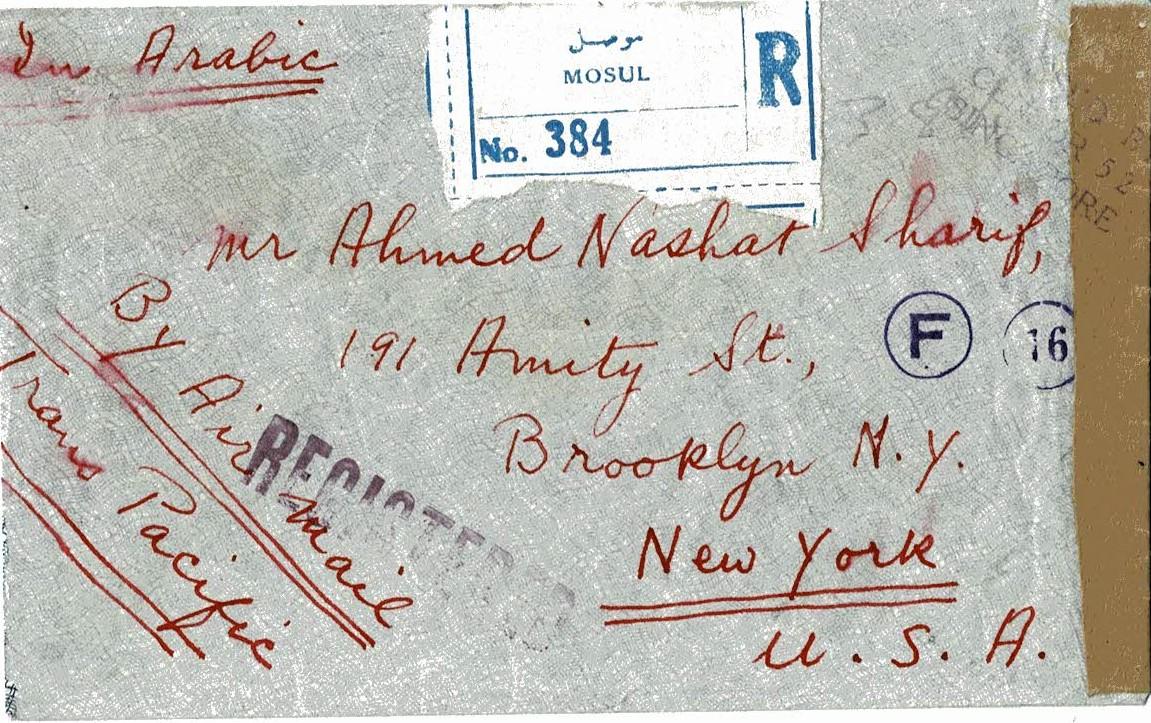 In Arabic
موصل
MOSUL
R
No. 384
Mr Ahmed Nashat Sharif,
191 Amity St.,
F
16
Brooklyn N.Y.
New York
U.S.A.
By Air Mail
Trans Pacific
REGISTERED
52